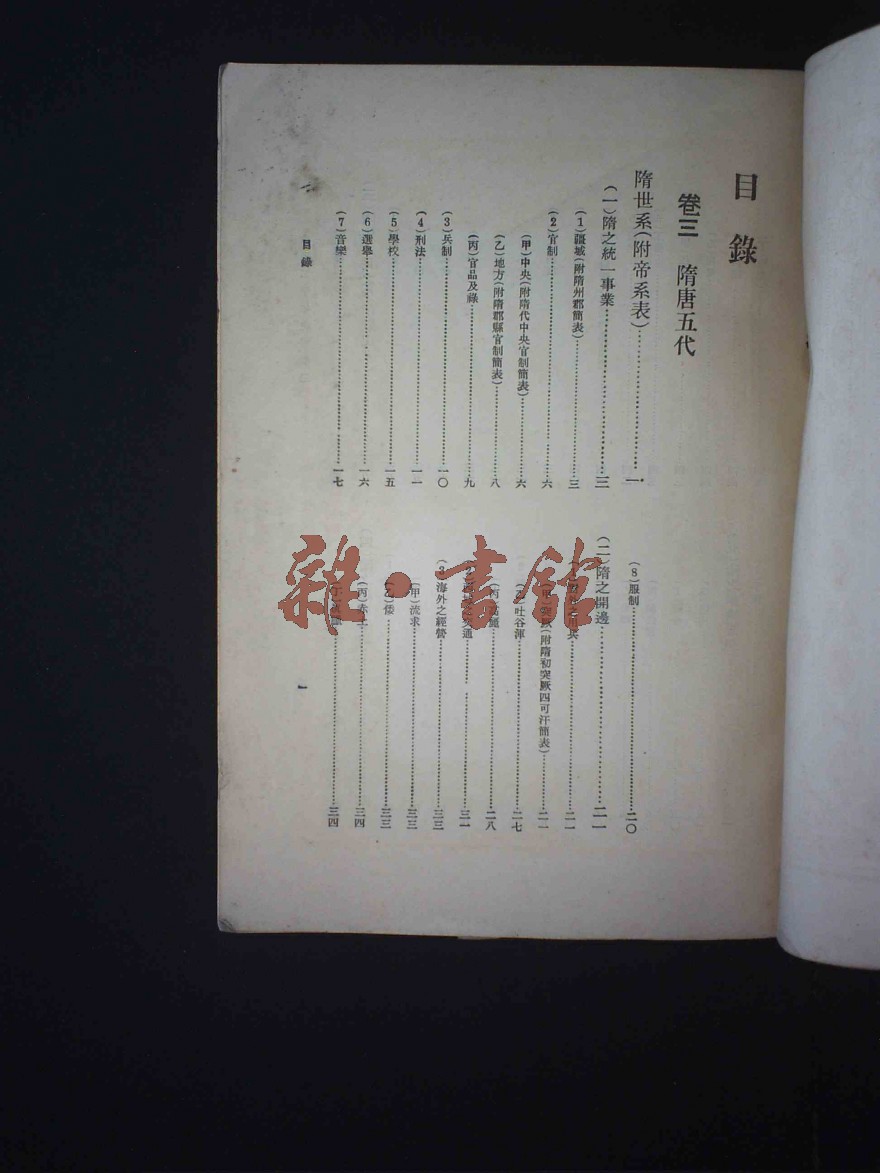 目錄
卷三 隋唐五代
隋世系(附帝系表)……一
(一)隋之統一事業……三
(1)疆域(附隋州郡簡表)……三
(2)官制……六
(甲)中央(附隋代中央官制簡表)……六
(乙)地方(附隋郡縣官制簡表)……八
(丙)官品及祿……九
(3)兵制……一〇
(4)刑法……一一
(5)學校……一五
(6)選舉……一六
(7)音樂……一七
(8)服制……二〇
(二)隋之開邊……二一
兵……二一
(附隋初突厥四可汗簡表)……二一
(乙)吐谷渾……二七
(丙)……二八
通……三一
(3)海外之經營……三三
(甲)流求……三三
(乙)倭……三三
(丙)赤土……三四
……三四
目錄
一
雜·書館